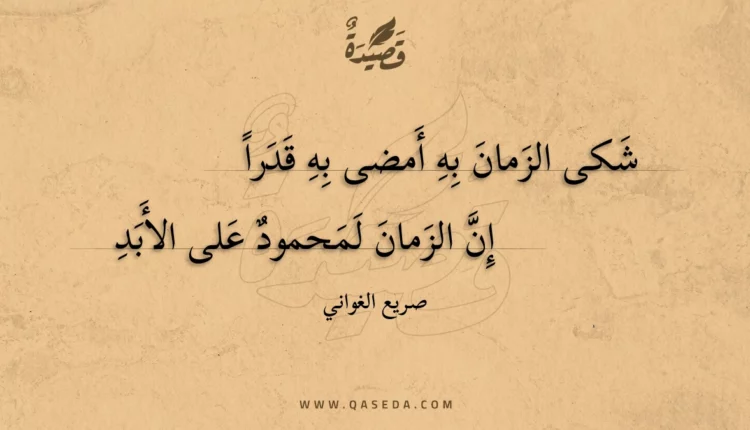 قَصِيْدَةٌ
شَكى الزَمانَ بِهِ أَمضى بِهِ قَدَراً
إِنَّ الزَمانَ لَمَحمودٌ عَلى الأَبَدِ
صريع الغواني
WWW.QASEDA.COM